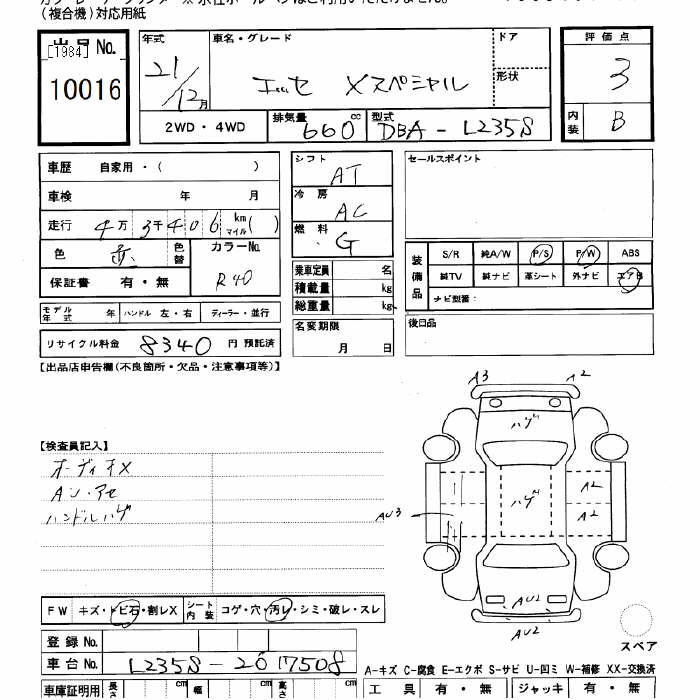 (複合機)対応用紙
出品 No.
[1984]
10016
年式
21/12月
車名・グレード
エッセ Xスペシャル
ドア
形状
評価点
3
内装
B
2WD・4WD
排気量
660 cc
型式
DBA-L235S
車歴 自家用・( )
車検 年 月
走行 4万3千406 km マイル( )
色 赤 色替
カラーNo.
R40
保証書 有・無
モデル年式 年 ハンドル 左・右 ディーラー・並行
リサイクル料金 8340 円 預託済
シフト
AT
冷房
AC
燃料
G
乗車定員 名
積載量 kg
総重量 kg
名変期限
月 日
セールスポイント
装備品
S/R 純A/W P/S P/W ABS
純TV 純ナビ 革シート 外ナビ エアB
ナビ型番:
後日品
【出品店申告欄(不良箇所・欠品・注意事項等)】
【検査員記入】
オーディオX
ハンドルハゲ
A3 A2
ハゲ
ハゲ
A2
A2
AU3
AU2
AU2
スペア
FW キズ・トビ石・割レX シート内装 コゲ・穴・汚レ・シミ・破レ・スレ
登録No.
車台No. L235S-2017508
A-キズ C-腐食 E-エクボ S-サビ U-凹ミ W-補修 XX-交換済
車庫証明用 長さ cm 幅 cm 高さ cm
工具 有・無 ジャッキ 有・無